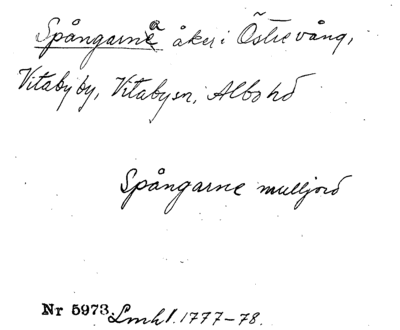 Spångarna åker i Östre vång,
Vitaby by, Vitaby sn, Albo hd
Spångarne mulljord
Nr 5973. Lmhl. 1777–78.